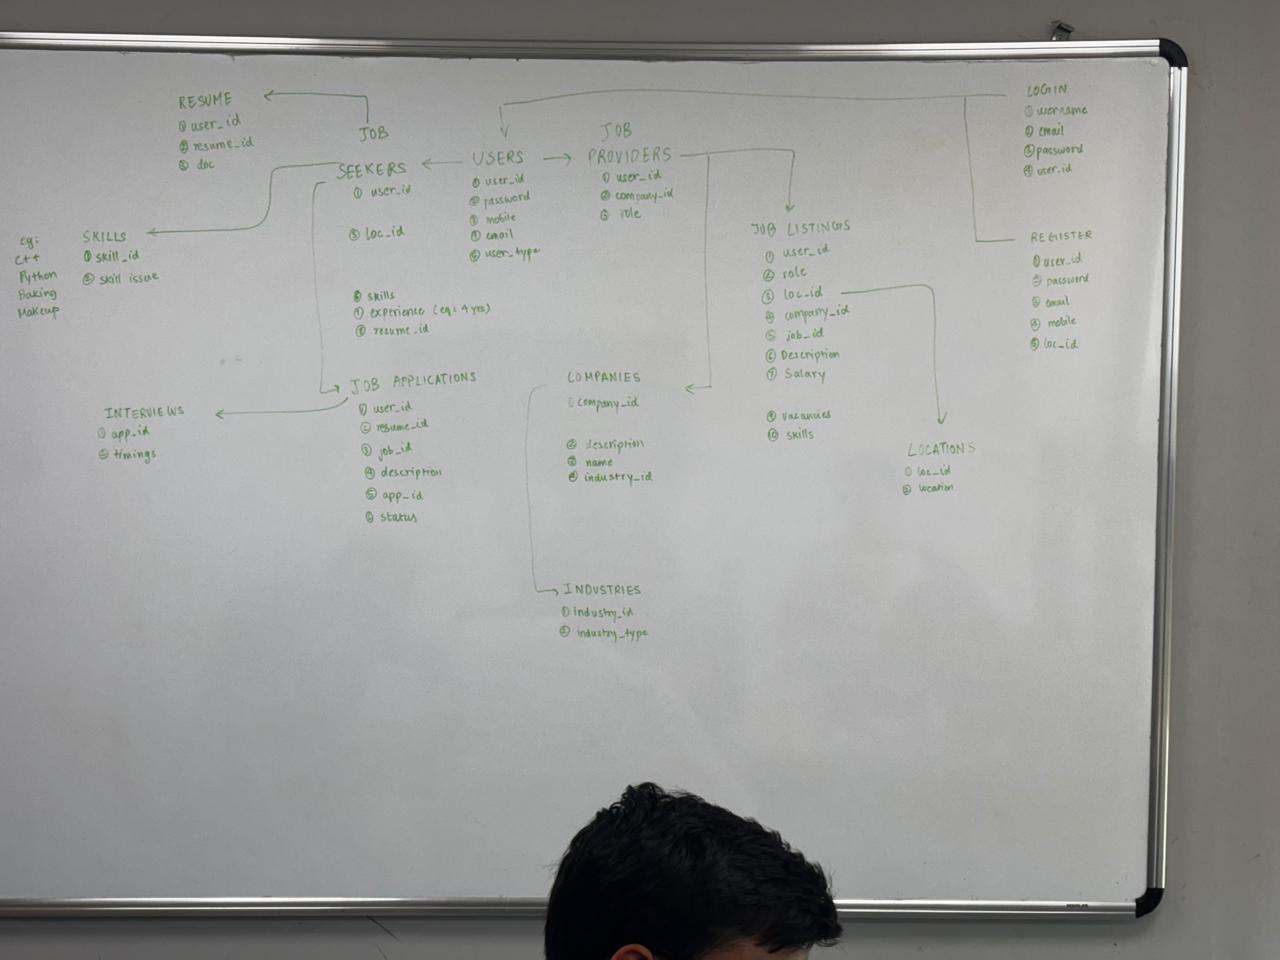 RESUME
① user_id
② resume_id
③ doc
JOB
SEEKERS
① user_id
③ loc_id
⑥ skills
⑦ experience (eg: 4 yrs)
⑧ resume_id
USERS
① user_id
② password
③ mobile
④ email
⑤ user_type
JOB
PROVIDERS
① user_id
② company_id
③ role
LOGIN
① username
② email
③ password
④ user_id
REGISTER
① user_id
② password
③ email
④ mobile
⑤ loc_id
eg:
C++
Python
Baking
Makeup
SKILLS
① skill_id
② skill issue
JOB LISTINGS
① user_id
② role
③ loc_id
④ company_id
⑤ job_id
⑥ Description
⑦ Salary
⑨ vacancies
⑩ skills
INTERVIEWS
① app_id
② timings
JOB APPLICATIONS
① user_id
② resume_id
③ job_id
④ description
⑤ app_id
⑥ status
COMPANIES
① company_id
② description
③ name
④ industry_id
LOCATIONS
① loc_id
② location
INDUSTRIES
① industry_id
② industry_type